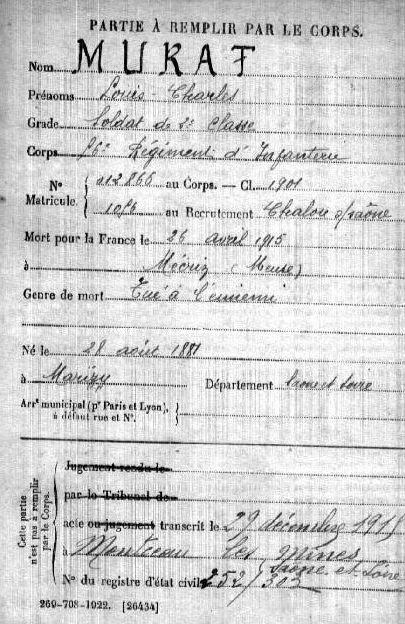 PARTIE À REMPLIR PAR LE CORPS.
Nom MURAT
Prénoms Louis Charles
Grade Soldat de 2e Classe
Corps 56e Régiment d'Infanterie
N° Matricule. { 012866 au Corps. — Cl. 1901
1056 au Recrutement Chalon s/saône
Mort pour la France le 26 avril 1915
à (Meuse)
Genre de mort Tué à l'ennemi
Né le 28 août 1881
à Marizy Département Saône et Loire
Arrt municipal (pr Paris et Lyon), à défaut rue et N°.
Cette partie n'est pas à remplir par le Corps.
Jugement rendu le
par le Tribunal de
acte ou jugement transcrit le 29 décembre 1915
à Montceau les Mines
Saône et Loire
N° du registre d'état civil 252/302
269-708-1922. [26434]